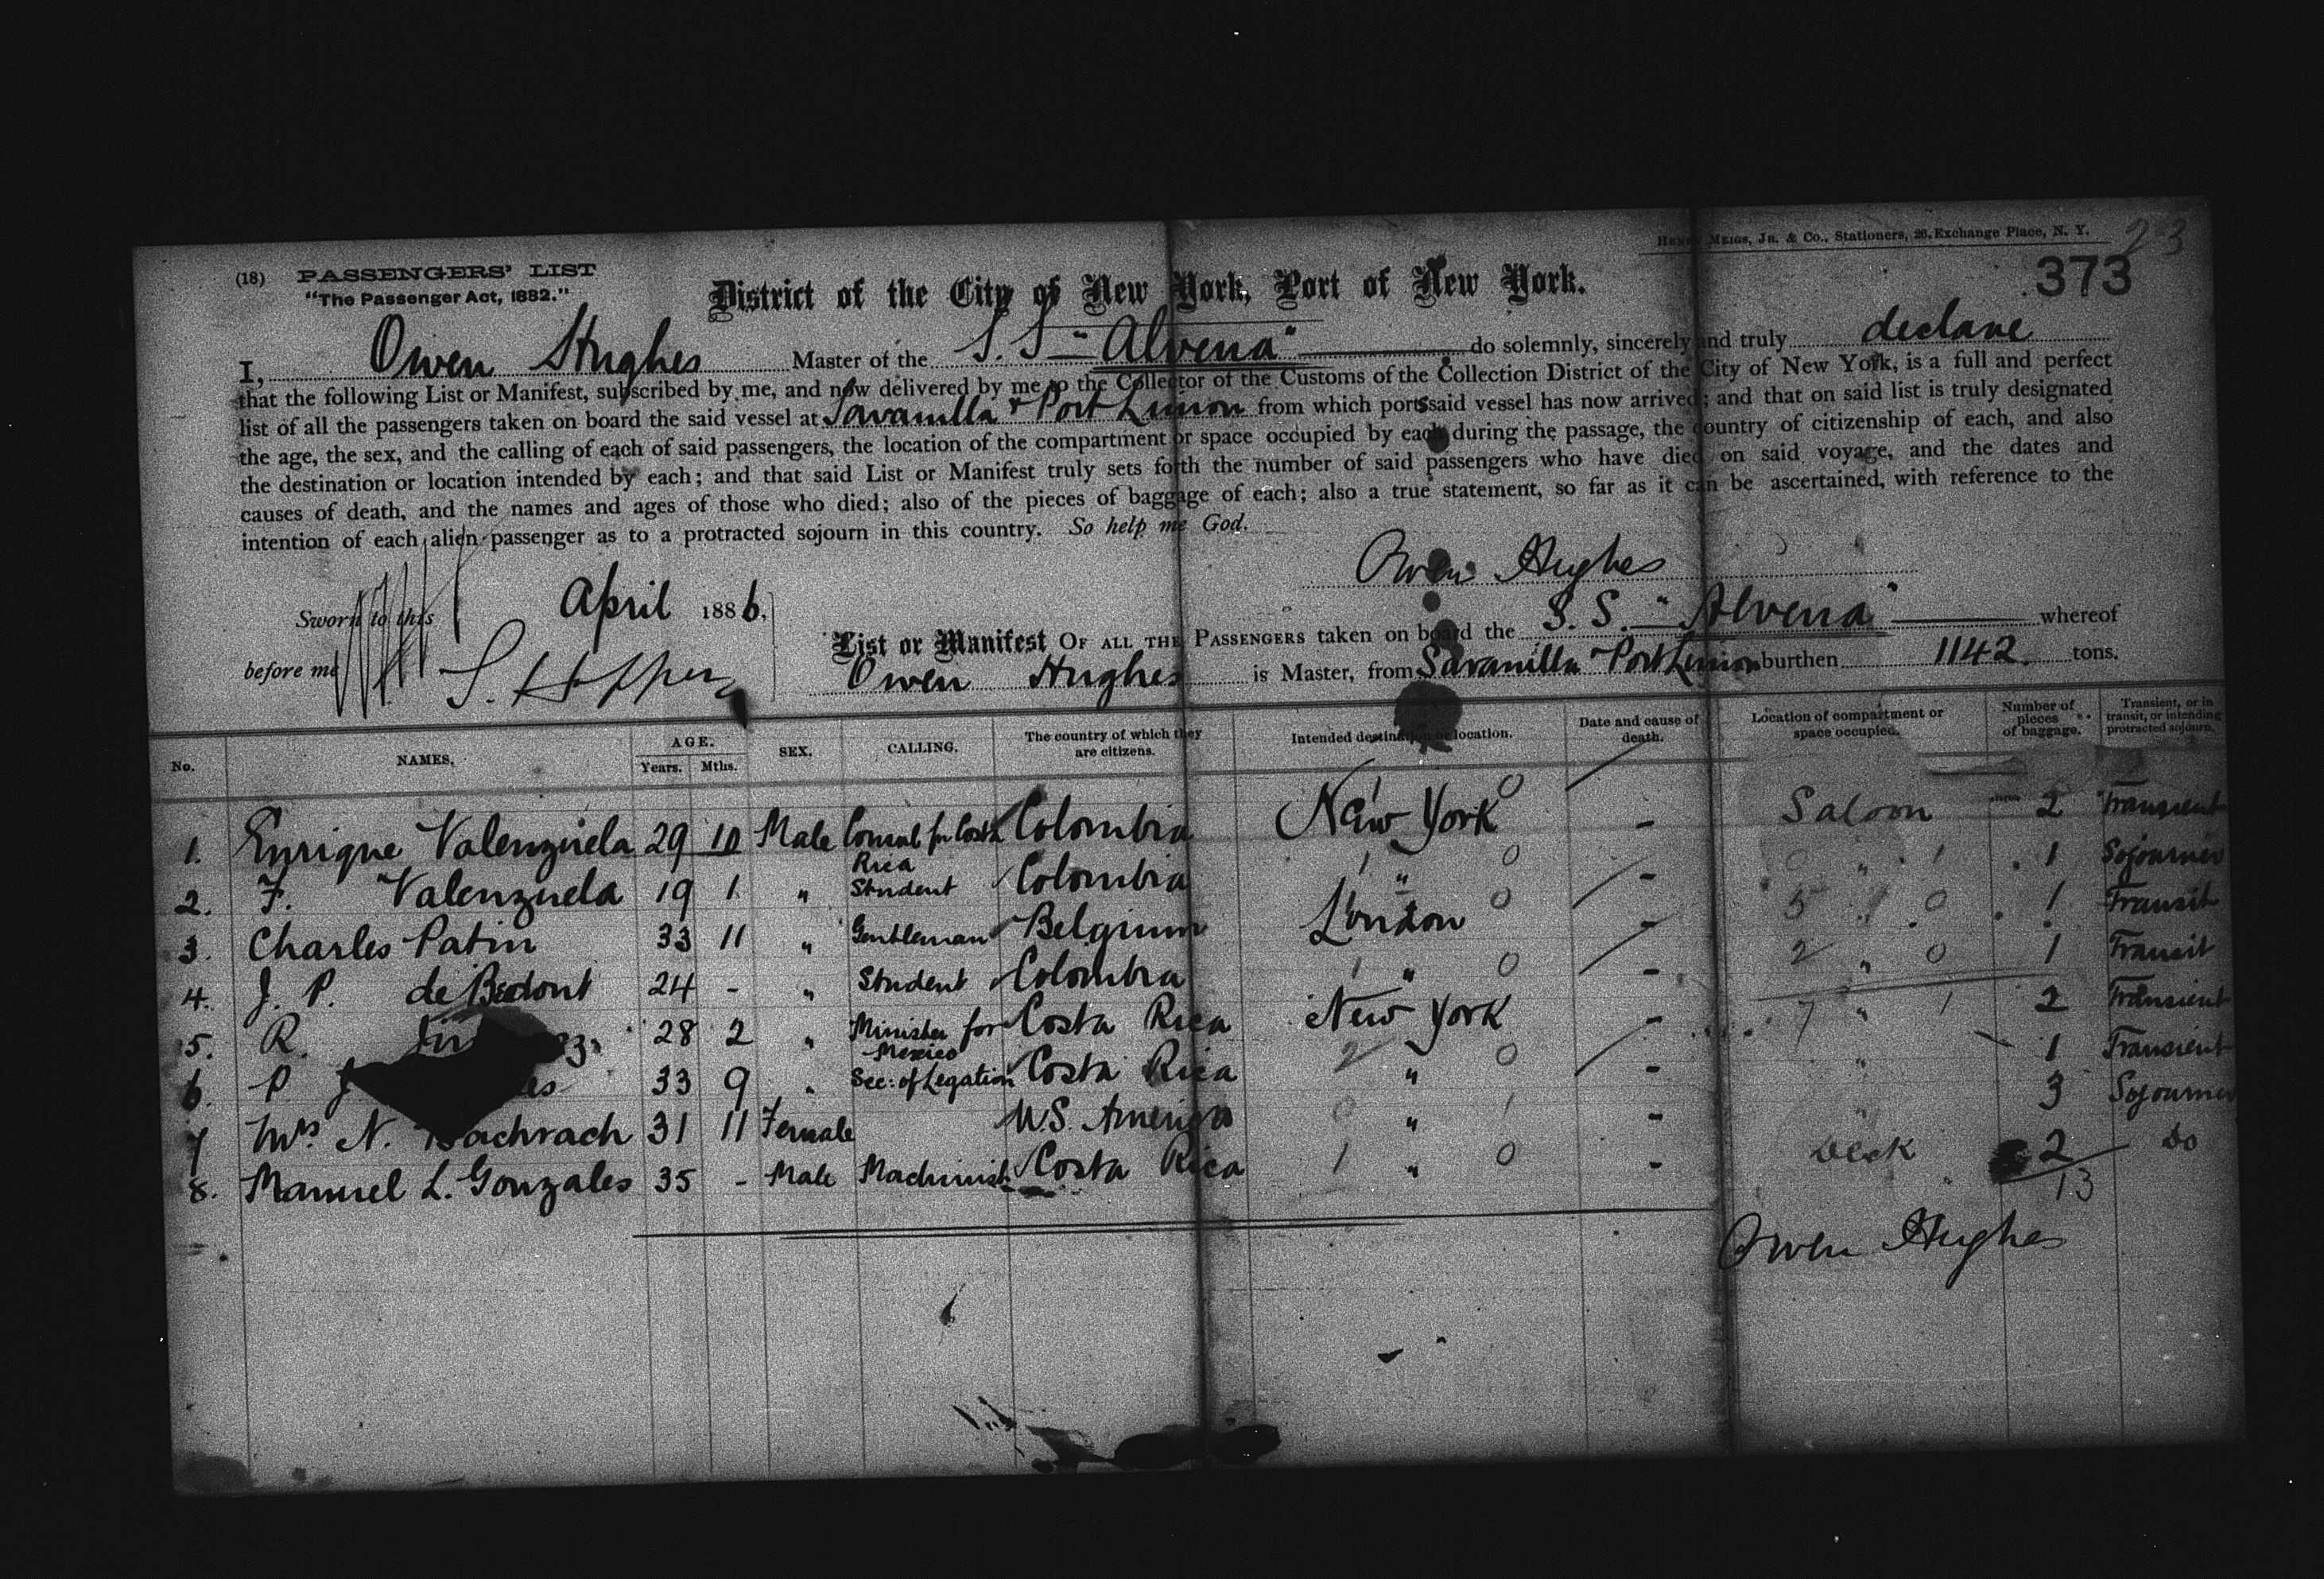 HENRY MEIGS, JR. & CO., Stationers, 26 Exchange Place, N. Y.
23
373
(18) PASSENGERS' LIST
"The Passenger Act, 1882."
District of the City of New York, Port of New York.
I, Owen Hughes Master of the S. S "Alvena" do solemnly, sincerely and truly declare
that the following List or Manifest, subscribed by me, and now delivered by me to the Collector of the Customs of the Collection District of the City of New York, is a full and perfect
list of all the passengers taken on board the said vessel at Savanilla & Port Limon from which ports said vessel has now arrived; and that on said list is truly designated
the age, the sex, and the calling of each of said passengers, the location of the compartment or space occupied by each during the passage, the country of citizenship of each, and also
the destination or location intended by each; and that said List or Manifest truly sets forth the number of said passengers who have died on said voyage, and the dates and
causes of death, and the names and ages of those who died; also of the pieces of baggage of each; also a true statement, so far as it can be ascertained, with reference to the
intention of each alien passenger as to a protracted sojourn in this country. So help me God.
Owen Hughes
Sworn to this April 1886.
before me
List or Manifest OF ALL THE PASSENGERS taken on board the S. S. "Alvena" whereof
Owen Hughes is Master, from Savanilla Port Limon burthen 1142 tons.
No. NAMES. AGE. Years. Mths. SEX. CALLING. The country of which they are citizens. Intended destination or location. Date and cause of death. Location of compartment or space occupied. Number of pieces of baggage. Transient, or in transit, or intending protracted sojourn.
1. Enrique Valenzuela 29 10 Male Consul for Costa Rica Colombia New York - Saloon 2 Transient
2. F. Valenzuela 19 1 " Student Colombia " - " 1 Sojourner
3. Charles Patin 33 11 " Gentleman Belgium London - " 1 Transit
4. J. P. de Bedout 24 - " Student Colombia " - " 1 Transit
5. R. 28 2 " Minister for Mexico Costa Rica New York - " 2 Transient
6. P. 33 9 " Sec: of Legation Costa Rica " - " 1 Transient
7 Mrs N. Bachrach 31 11 Female U.S. America " - " 3 Sojourner
8. Manuel L. Gonzales 35 - Male Machinist Costa Rica " - Deck 2 Do
13
Owen Hughes